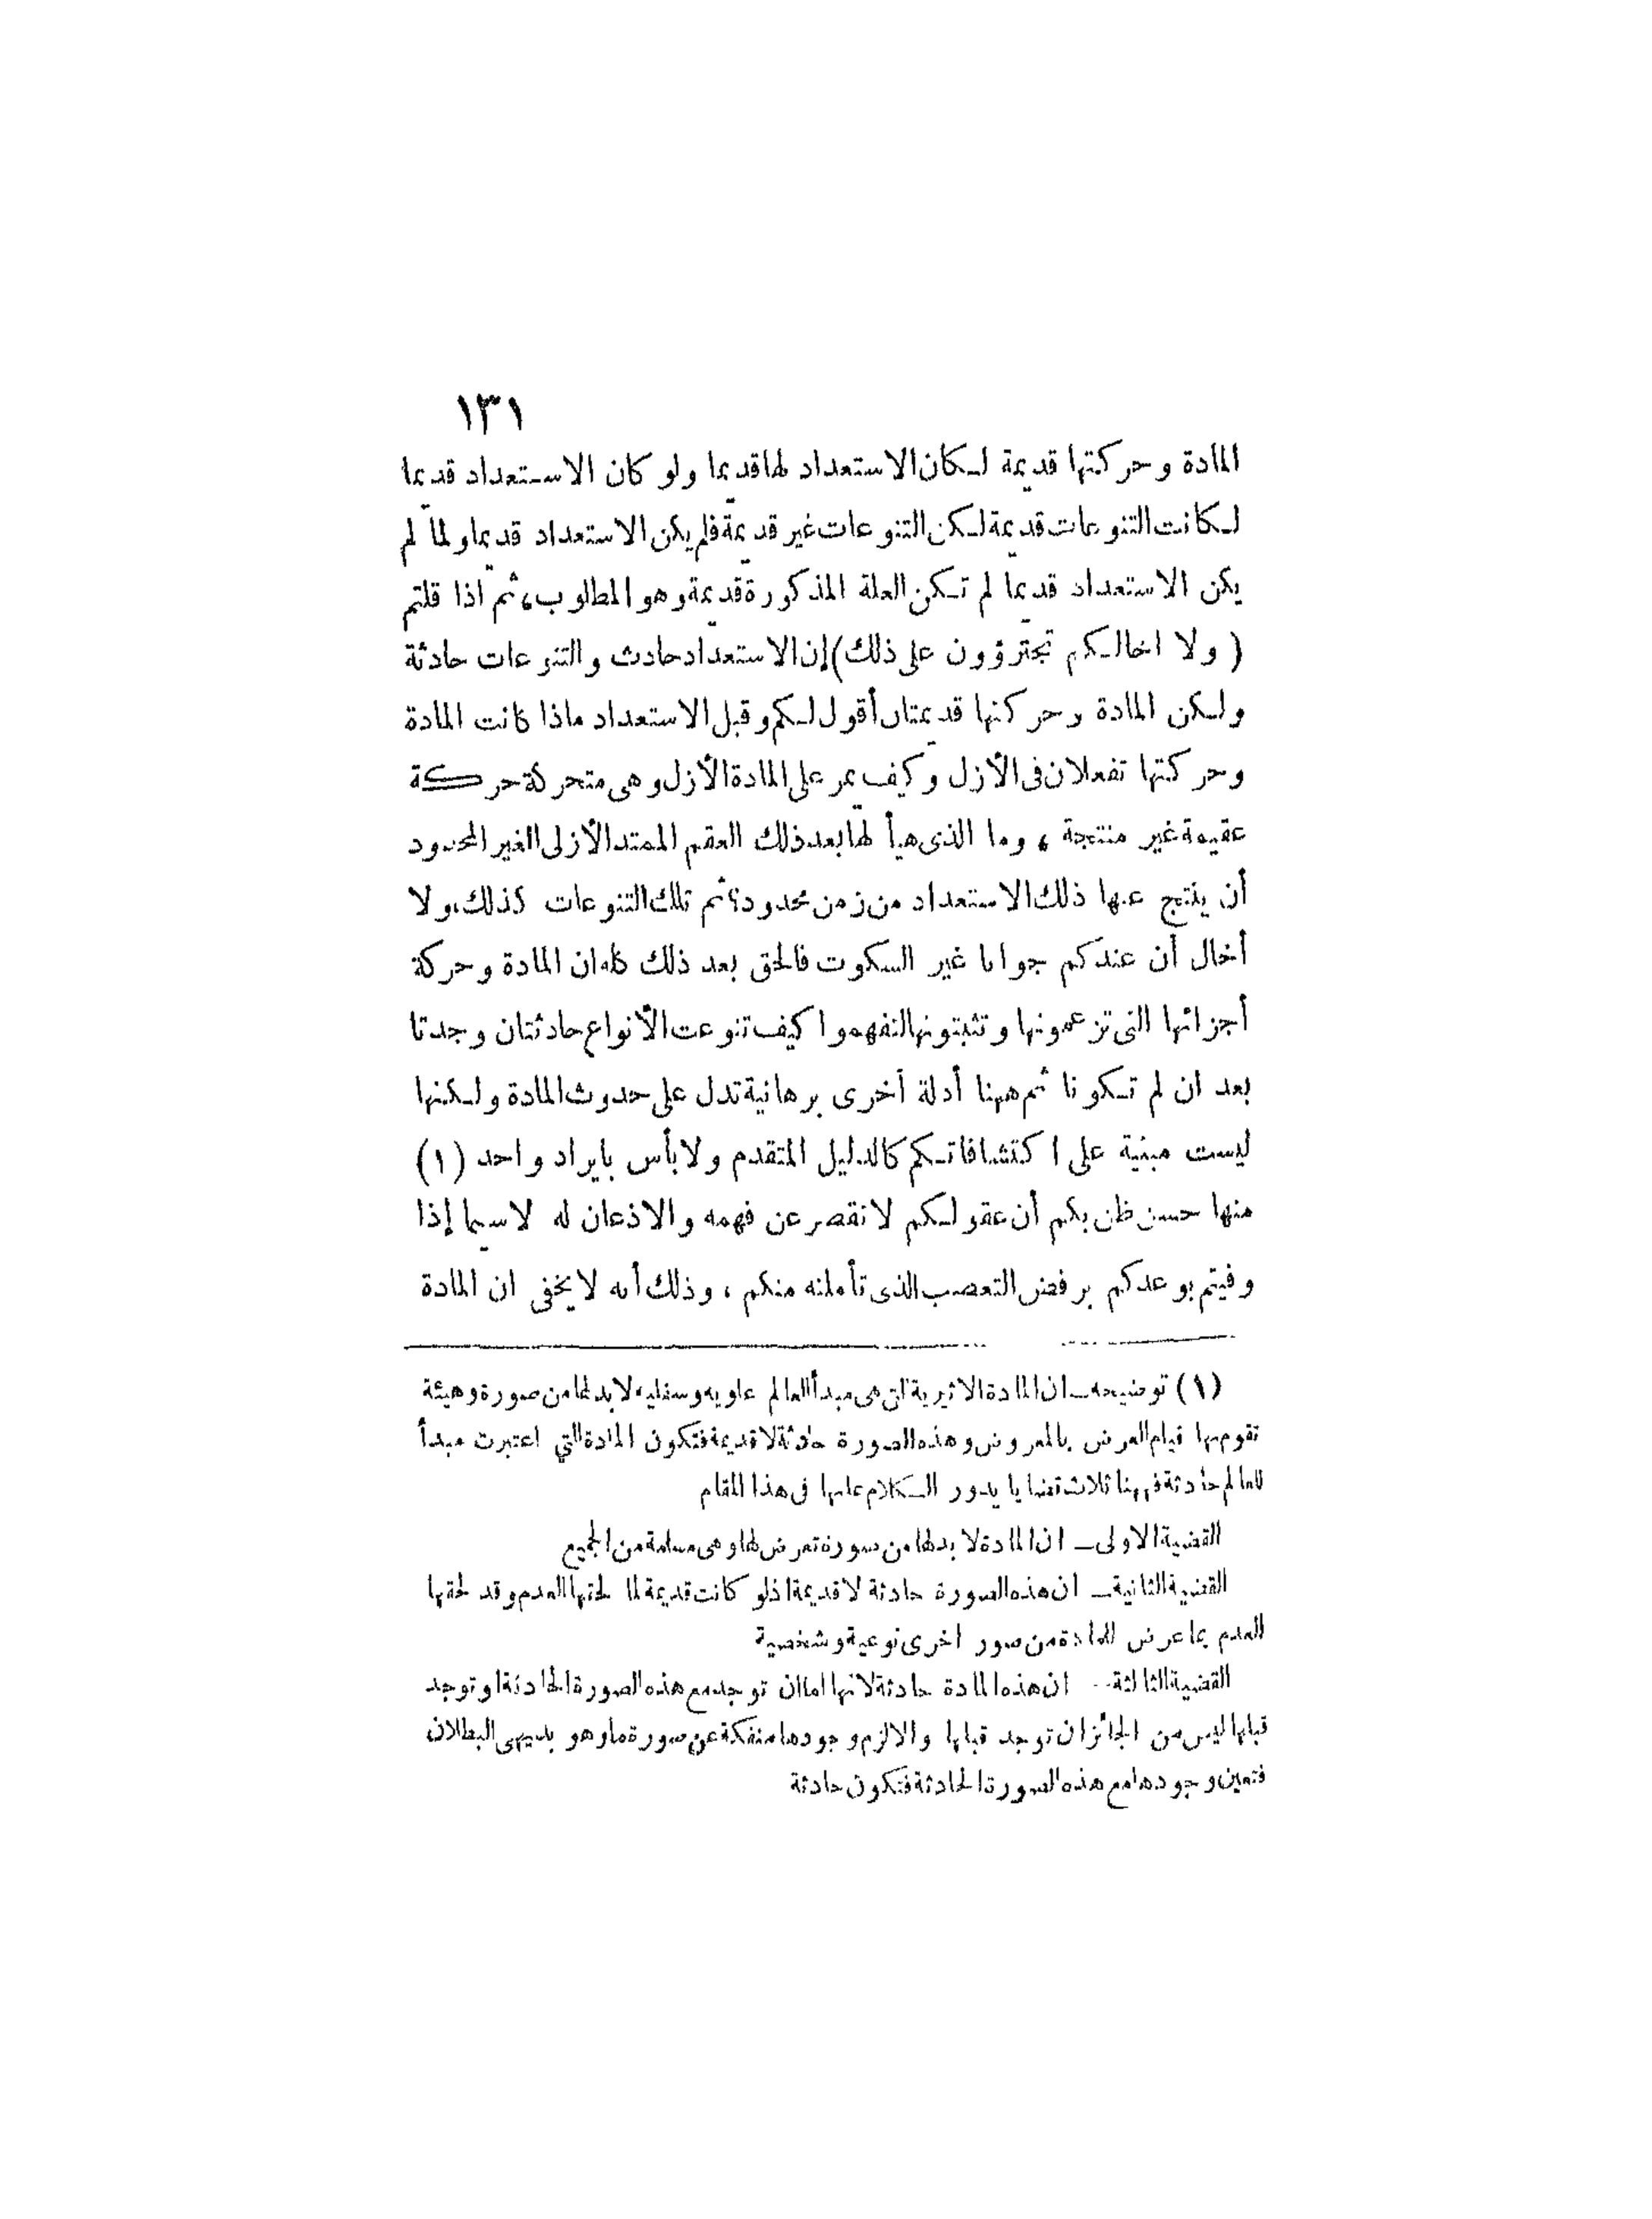 ١٣١
المادة وحركتها قديمة لكان الاستعداد لها قديما ولو كان الاستعداد قديما
لكانت التنوعات قديمة لكن التنوعات غير قديمة فلم يكن الاستعداد قديما ولما لم
يكن الاستعداد قديما لم تكن العلة المذكورة قديمة وهو المطلوب، ثم اذا قلتم
( ولا اخالكم تجترؤون على ذلك) إن الاستعداد حادث والتنوعات حادثة
ولكن المادة وحركتها قديمتان أقول لكم وقبل الاستعداد ماذا كانت المادة
وحركتها تفعلان فى الأزل وكيف يمر على المادة الأزل وهى متحركة حركة
عقيمة غير منتجة ، وما الذى هيأ لها بعد ذلك العقم الممتد الأزلى الغير المحدود
أن ينتج عنها ذلك الاستعداد من زمن محدود؟ ثم تلك التنوعات كذلك، ولا
أخال أن عندكم جوابا غير السكوت فالحق بعد ذلك كله ان المادة وحركة
أجزائها التى تزعمونها وتثبتونها لتفهموا كيف تنوعت الأنواع حادثتان وجدتا
بعد ان لم تكونا ثم ههنا أدلة أخرى برهانية تدل على حدوث المادة ولكنها
ليست مبنية على اكتشافاتكم كالدليل المتقدم ولا بأس بايراد واحد (١)
منها حسن ظن بكم أن عقولكم لا تقصر عن فهمه والاذعان له لاسيما إذا
وفيتم بوعدكم برفض التعصب الذى تأملنه منكم ، وذلك أنه لا يخفى ان المادة
(١) توضيحه ـ ان المادة الاثيرية التى هى مبدأ العالم علويه وسفليه لابد لها من صورة وهيئة
تقوم بها قيام العرض بالمعروض وهذه الصورة حادثة لا قديمة فتكون المادة التي اعتبرت مبدأ
للعالم حادثة فههنا ثلاث قضايا يدور الكلام عليها فى هذا المقام
القضية الاولى ـ ان المادة لا بد لها من صورة تعرض لها وهى مسلمة من الجميع
القضية الثانية ـ ان هذه الصورة حادثة لا قديمة اذ لو كانت قديمة لما لحقها العدم وقد لحقها
العدم بما عرض للمادة من صور اخرى نوعية وشخصية
القضية الثالثة ـ ان هذه المادة حادثة لانها اما ان توجد مع هذه الصورة الحادثة او توجد
قبلها ليس من الجائز ان توجد قبلها والا لزم وجودها منفكة عن صورة ما وهو بديهى البطلان
فتعين وجودها مع هذه الصورة الحادثة فتكون حادثة